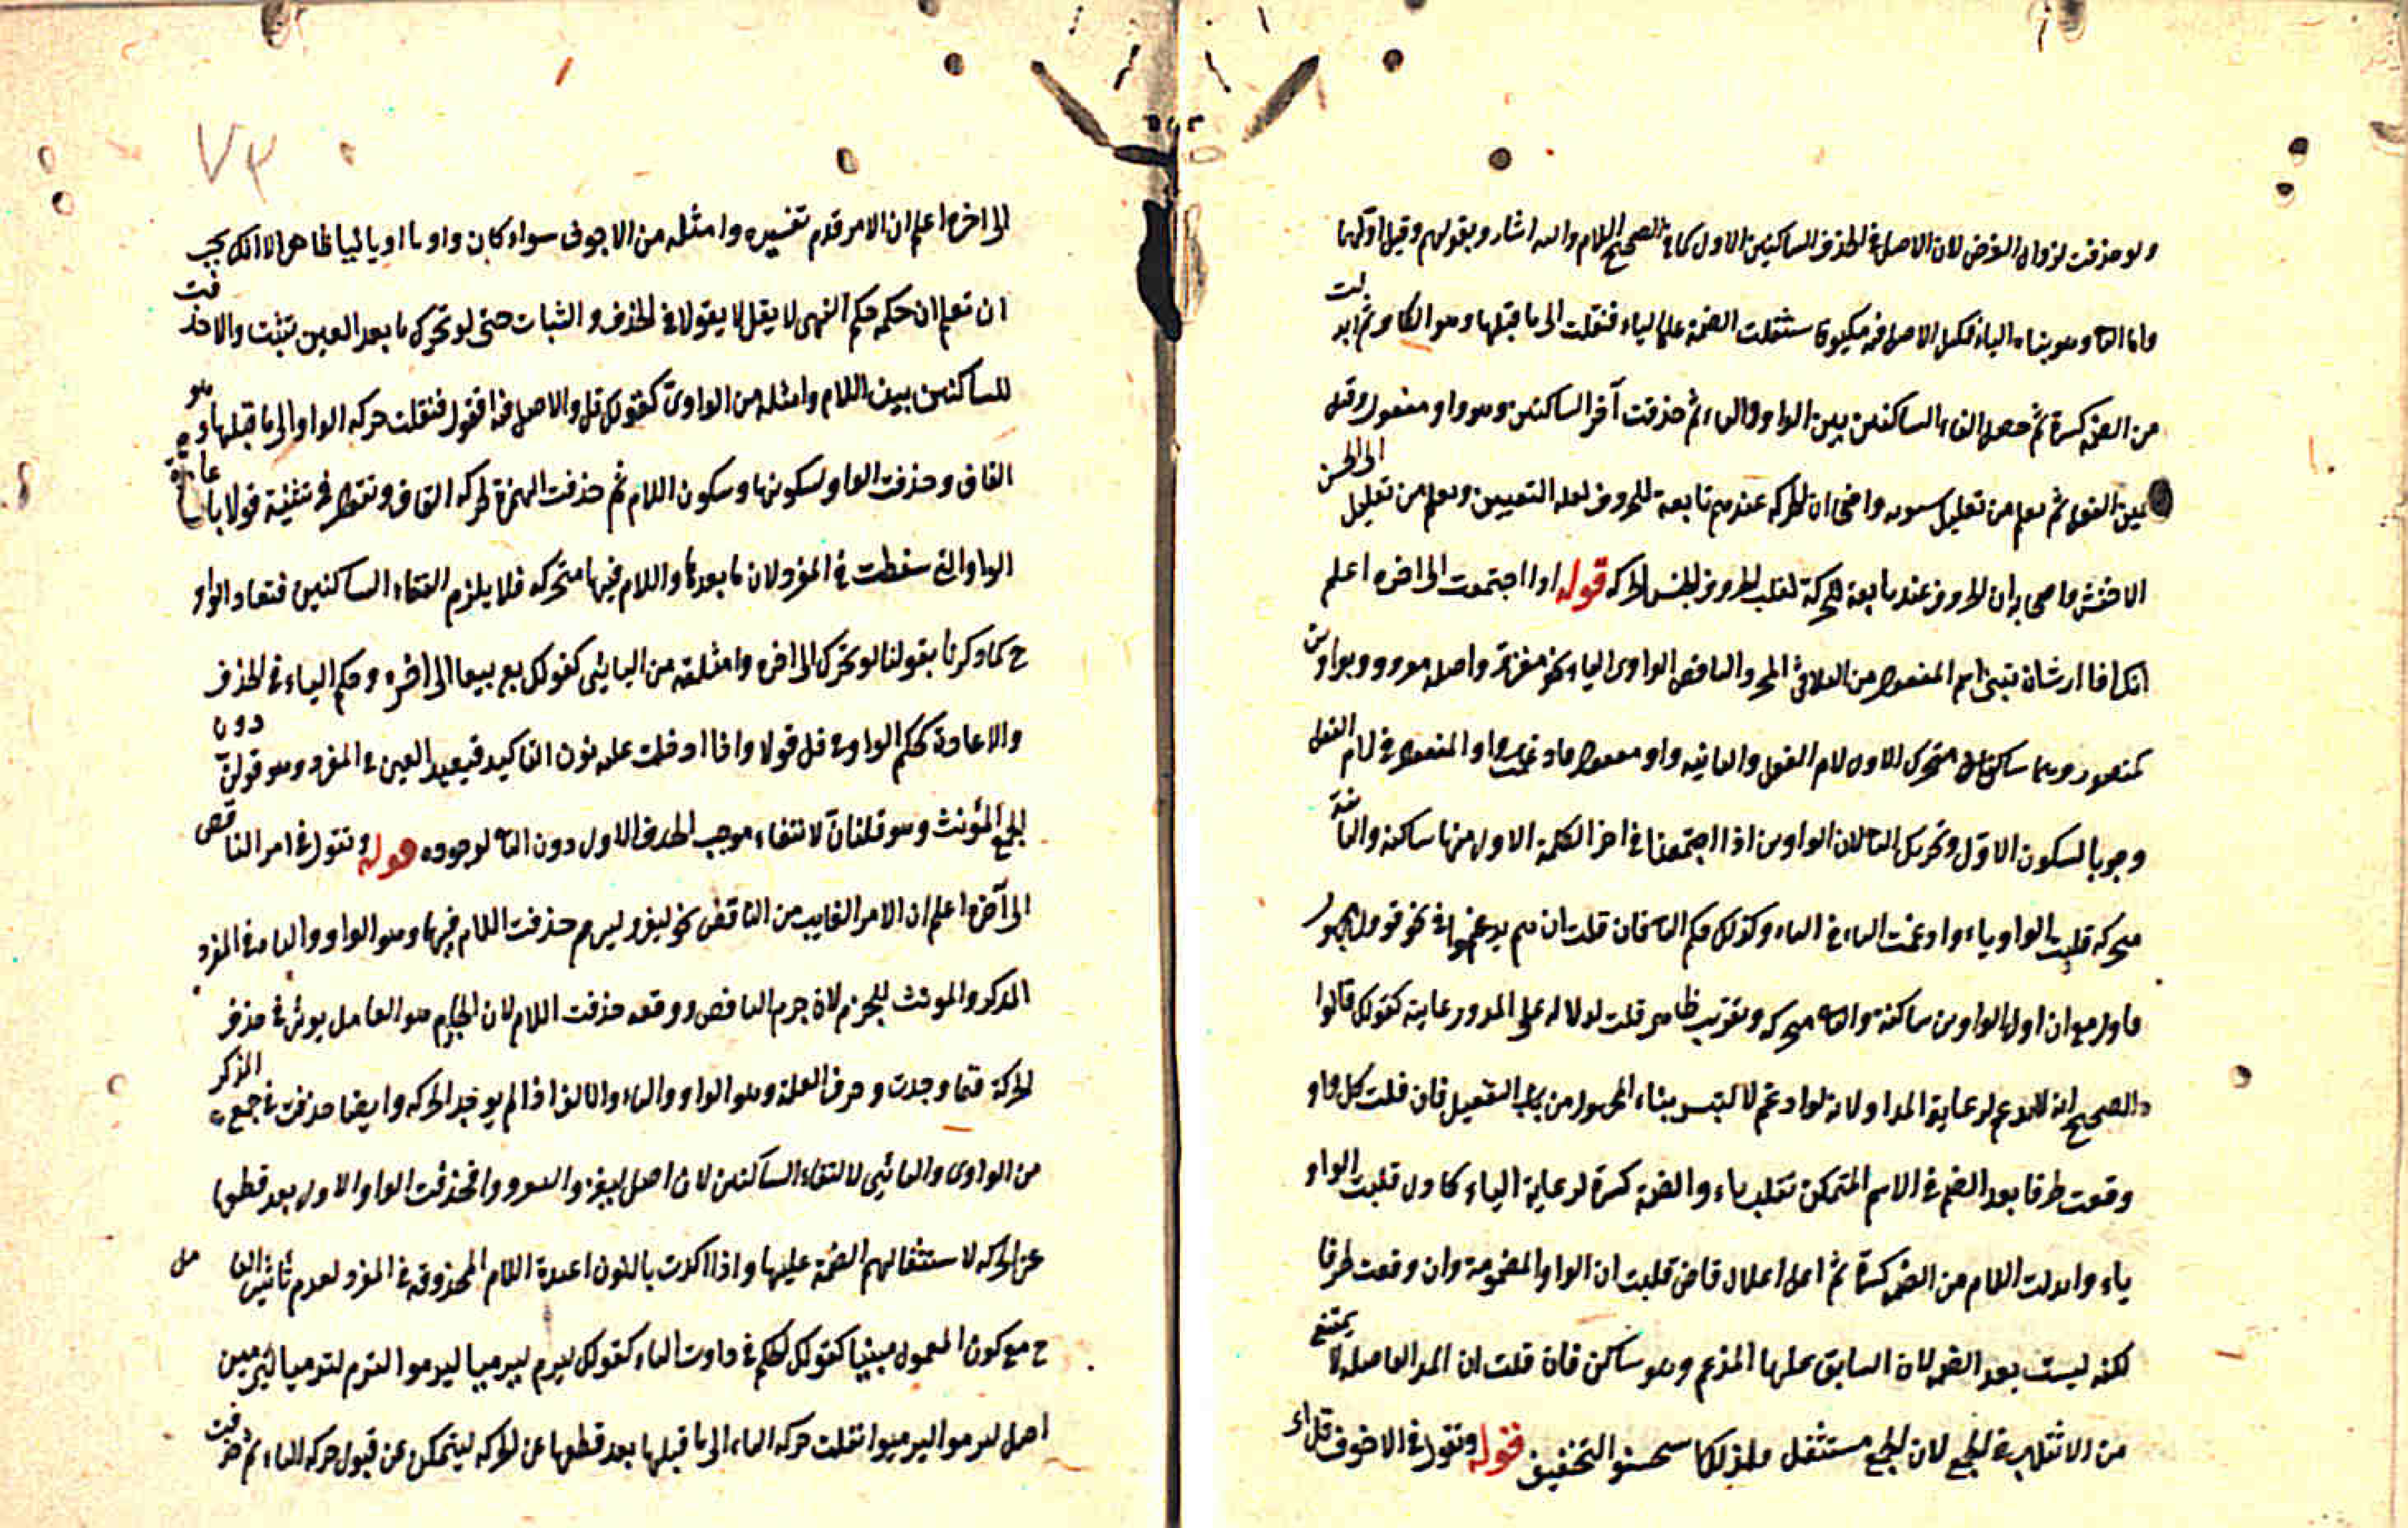 ولو حذفت لزوال الغرض لان الاصل في الحذف الساكنين الاول كما في الصحيح اللام واليه اشار وبقولهم وقيل اولهما
واما الثا وهو بناء الياء مكيل الاصل فيه مكيول استثقلت الضمة على الياء فنقلت الى ما قبلها وهو الكاف ثم ابدلت
من الضمة كسرة ثم حصل التقاء الساكنين بين الواو والياء ثم حذفت آخر الساكنين وهو واو مفعول وقيل
عين الفعل ثم يعلم من تعليل سيبويه واضح ان الحركه عندهم تابعة للحروف لعله التعيين ويعلم من تعليل ابي الحسن
الاخفش واصحابه ان الحروف عند تابعة للحركة لقلب الحروف بجنس الحركه قوله اذا اجتمعت الى اخره اعلم
انك اذا اردت ان تبنى اسم المفعول من الثلاثي المجرد الناقص الواوى الياء نحو مغزو واصله مغزوو بواوين
كمنصور وهما ساكن متحرك الاول لام الفعل والثانيه واو مفعول فادغمت واو المفعول في لام الفعل
وجوبا لسكون الاول وتحريك الثا لان الواوين اذا اجتمعتا في اخر الكلمة الاول منها ساكنه والثانية
متحركه قلبت الواو ياء وادغمت الياء في الياء وكذلك حكم الثا فان قلت ان لم يدغموا في نحو قوول مجهول
قاول مع ان اول الواوين ساكنة والثا متحركه وتقريب ظاهر قلت لدلاله على المد ورعاية كقولك قالوا
والصحيح انه لا يدغم لرعاية المد اولا لانه لو ادغم لالتبس ببناء المجهول من باب التفعيل فان قلت كل واو
وقعت طرفا بعد الضم في الاسم المتمكن تقلب ياء والضمة كسرة لرعاية الياء كادل قلبت الواو
ياء وابدلت اللام من الضم كسرة ثم اعل اعلال قاض قلبت ان الواو المضمومة وان وقعت طرفا
لكنه ليست بعد الضم لان السابق عليها المدغم وهو ساكن فان قلت ان المد الفاصلة لا يمتنع
من الاثقلية في الجمع لان الجمع مستثقل ولذلك استحسنوا التخفيف قوله وتقول في الاجوف قل اه
٧٣
الى اخره اعلم ان الامر قدم تفسيره وامثله من الاجوف سواء كان واويا او يائيا ظاهر الا انك يجب
ان تعلم ان حكمه حكم النهى لا يقل لا يقولا في الحذف والثبات حتى لو تحرك ما بعد العين تثبت والا حذفت
للساكنين بين اللام وامثله من الواوى كقولك قل والاصل فيه اقول فنقلت حركه الواو الى ما قبلها وهو
القاف وحذفت الواو لسكونها وسكون اللام ثم حذفت الهمزة لحركه القاف وتقول في تثنية قولا باعادة
الواو التي سقطت في المفرد لان ما بعدها واللام فيها متحركه فلا يلزم التقاء الساكنين فتعاد الواو
ح كما ذكرنا بقولنا لو تحرك الى اخره وامثلته من اليائى كقولك بع بيعا الى اخره وحكم الياء في الحذف
والاعادة كحكم الواو في قل قولا واذا ادخلت عليه نون التاكيد فيعيد العين في المفرد وهو قولن دون
الجمع المؤنث وهو قلنان لانتفاء موجب الحذف الاول دون الثا لوجوده قوله وتقول في امر الناقص
الى آخره اعلم ان الامر الغايب من الناقص نحو ليغز وليرم حذفت اللام فيها وهو الواو والياء في المفرد
المذكر والمونث للجزم لان جزم الناقص ووقفه حذفت اللام لان الجازم هو العامل يوثر في حذف
الحركة متما وجدت وحرف العلة وهو الواو والياء والالف اذا لم يوجد الحركه وايضا حذفت في جمع المذكر
من الواوى واليائي لالتقاء الساكنين لان اصل ليغزوا ليغزووا فحذفت الواو الاول بعد قطعها
عن الحركه لاستثقالهم الضمة عليها واذا اكدت بالنون اعدة اللام المحذوفه في المفرد لعدم تاثير العامل
ح مع كون المعمول مبنيا كقولك كحكم في ذوات الياء كقولك ليرم ليرميا ليرموا لترم لترميا ليرمين
اصل ليرموا ليرميوا نقلت حركه الياء الى ما قبلها بعد قطعها عن الحركه ليتمكن عن قبول حركه الياء ثم حذفت